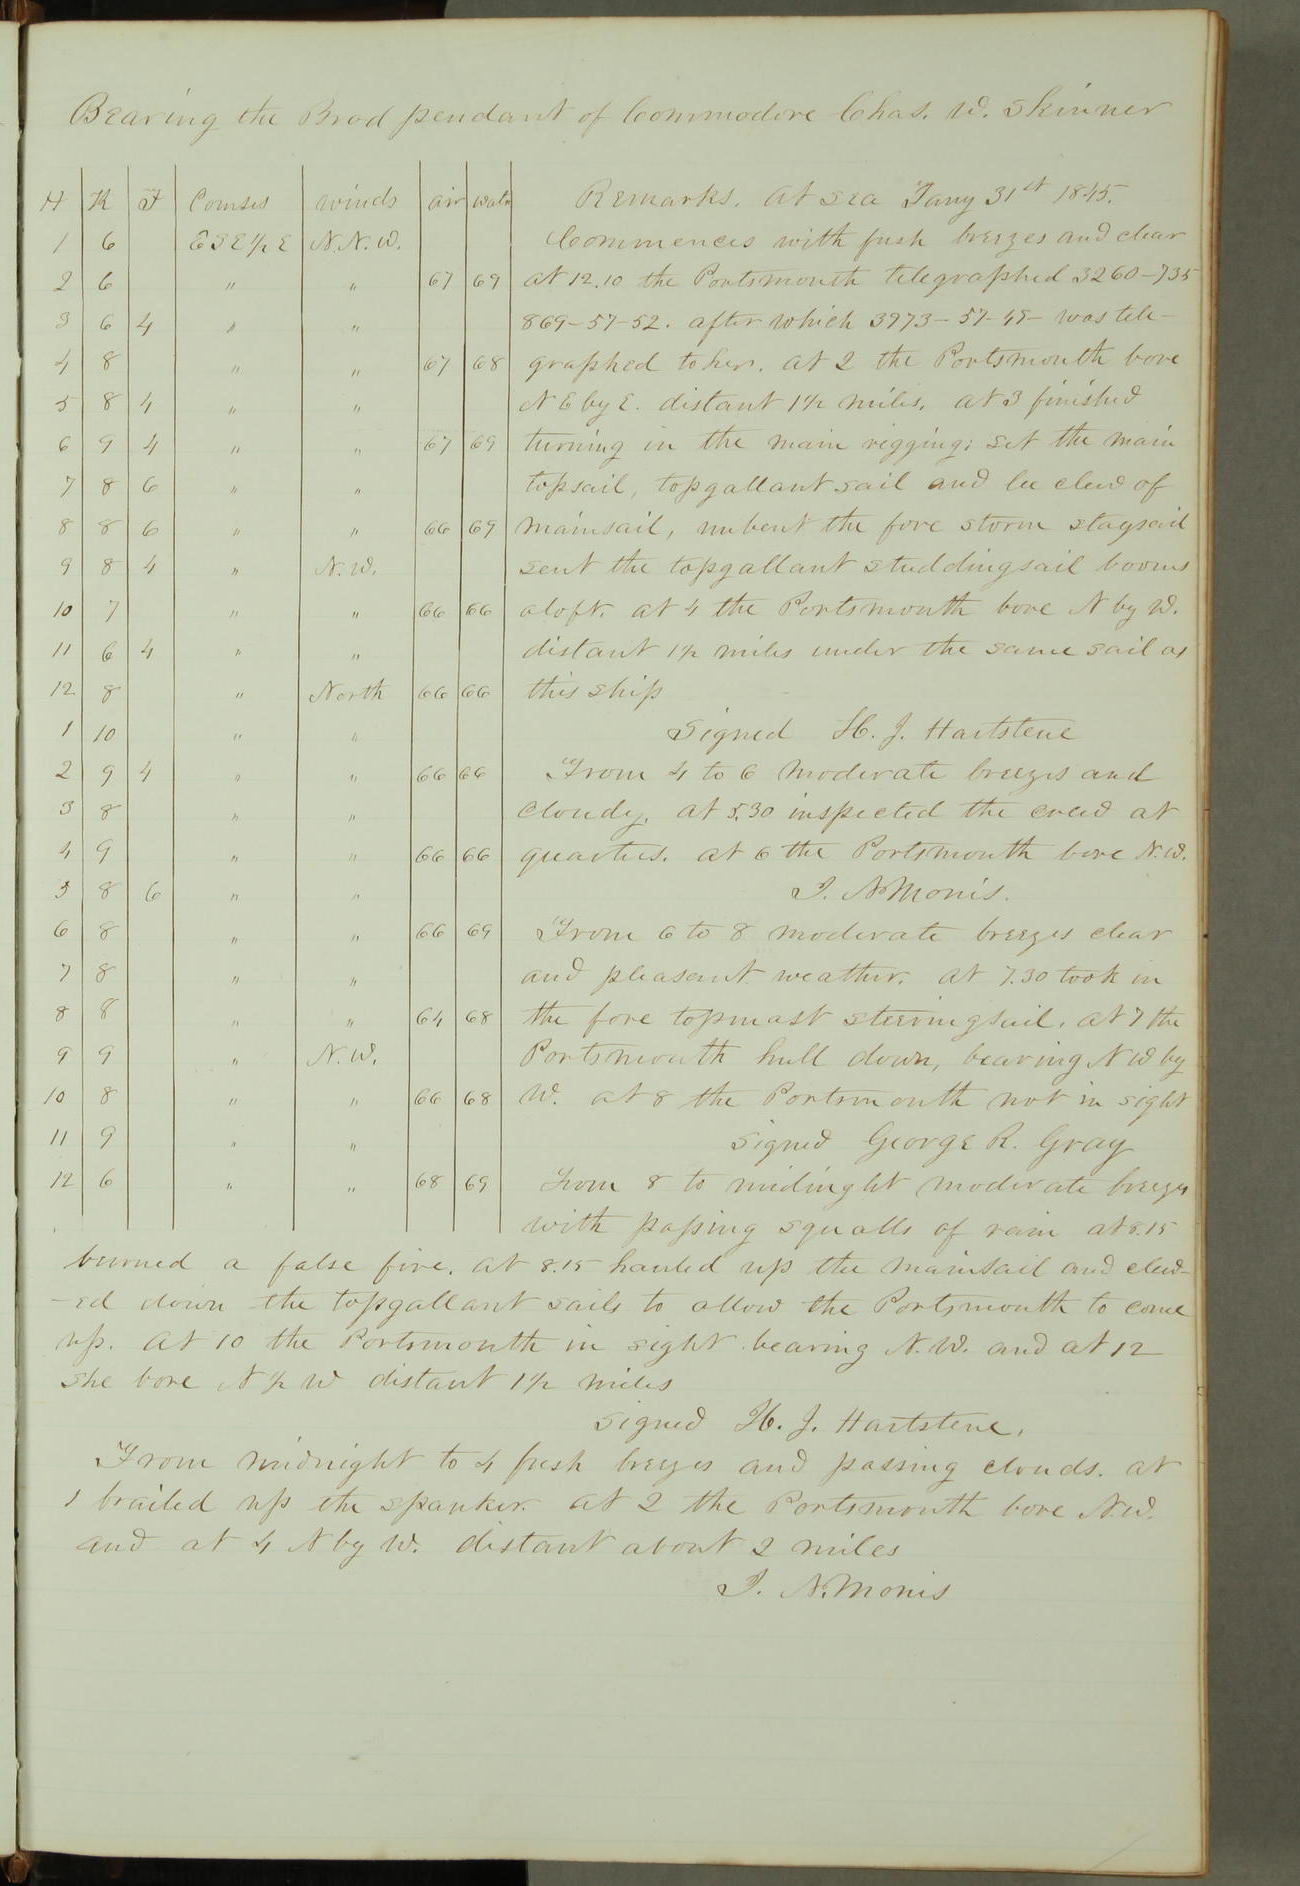 Bearing the Brod pendant of Commodore Chas. W. Skinner
H K F Courses winds air water Remarks. At sea Jany 31st 1845.
1 6 ESE½E N.N.W. Commences with fresh breezes and clear
2 6 " " 67 69 at 12.10 the Portsmouth telegraphed 3260-735
3 6 4 " " 869-57-52. after which 3973-57-45- was tele-
4 8 " " 67 68 graphed to her. at 2 the Portsmouth bore
5 8 4 " " N E by E. distant 1½ miles. at 3 finished
6 9 4 " " 67 69 turning in the main rigging; set the main
7 8 6 " " topsail, topgallant sail and lee clew of
8 8 6 " " 66 69 mainsail, unbent the fore storm staysail
9 8 4 " N.W. sent the topgallant studdingsail booms
10 7 " " 66 66 aloft. at 4 the Portsmouth bore N by W.
11 6 4 " " distant 1½ miles under the same sail as
12 8 " North 66 66 this ship
1 10 " " Signed H. J. Hartstene
2 9 4 " " 66 66 From 4 to 6 moderate breezes and
3 8 " " cloudy. at 5.30 inspected the crew at
4 9 " " 66 66 quarters. at 6 the Portsmouth bore N.W.
5 8 6 " " I. N Monis.
6 8 " " 66 69 From 6 to 8 moderate breezes clear
7 8 " " and pleasant weather. at 7.30 took in
8 8 " " 64 68 the fore topmast steeringsail. at 7 the
9 9 " N.W. Portsmouth hull down, bearing N W by
10 8 " " 66 68 W. at 8 the Portsmouth not in sight
11 9 " " Signed George R. Gray
12 6 " " 68 69 From 8 to midinght moderate breezes
with passing squalls of rain at 8.15
burned a false fire. at 8.15 hauled up the mainsail and clew-
-ed down the topgallant sails to allow the Portsmouth to come
up. At 10 the Portsmouth in sight bearing N.W. and at 12
she bore N ½ W distant 1½ miles
Signed H. J. Hartstene.
From midnight to 4 fresh breezes and passing clouds. at
1 brailed up the spanker. at 2 the Portsmouth bore N.W.
and at 4 N by W. distant about 2 miles
I. N. Monis